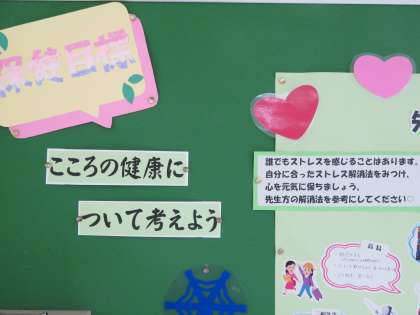 保健目標
こころの健康に
ついて考えよう
誰でもストレスを感じることはあります。
自分に合ったストレス解消法をみつけ、
心を元気に保ちましょう。
先生方の解消法を参考にしてください♡